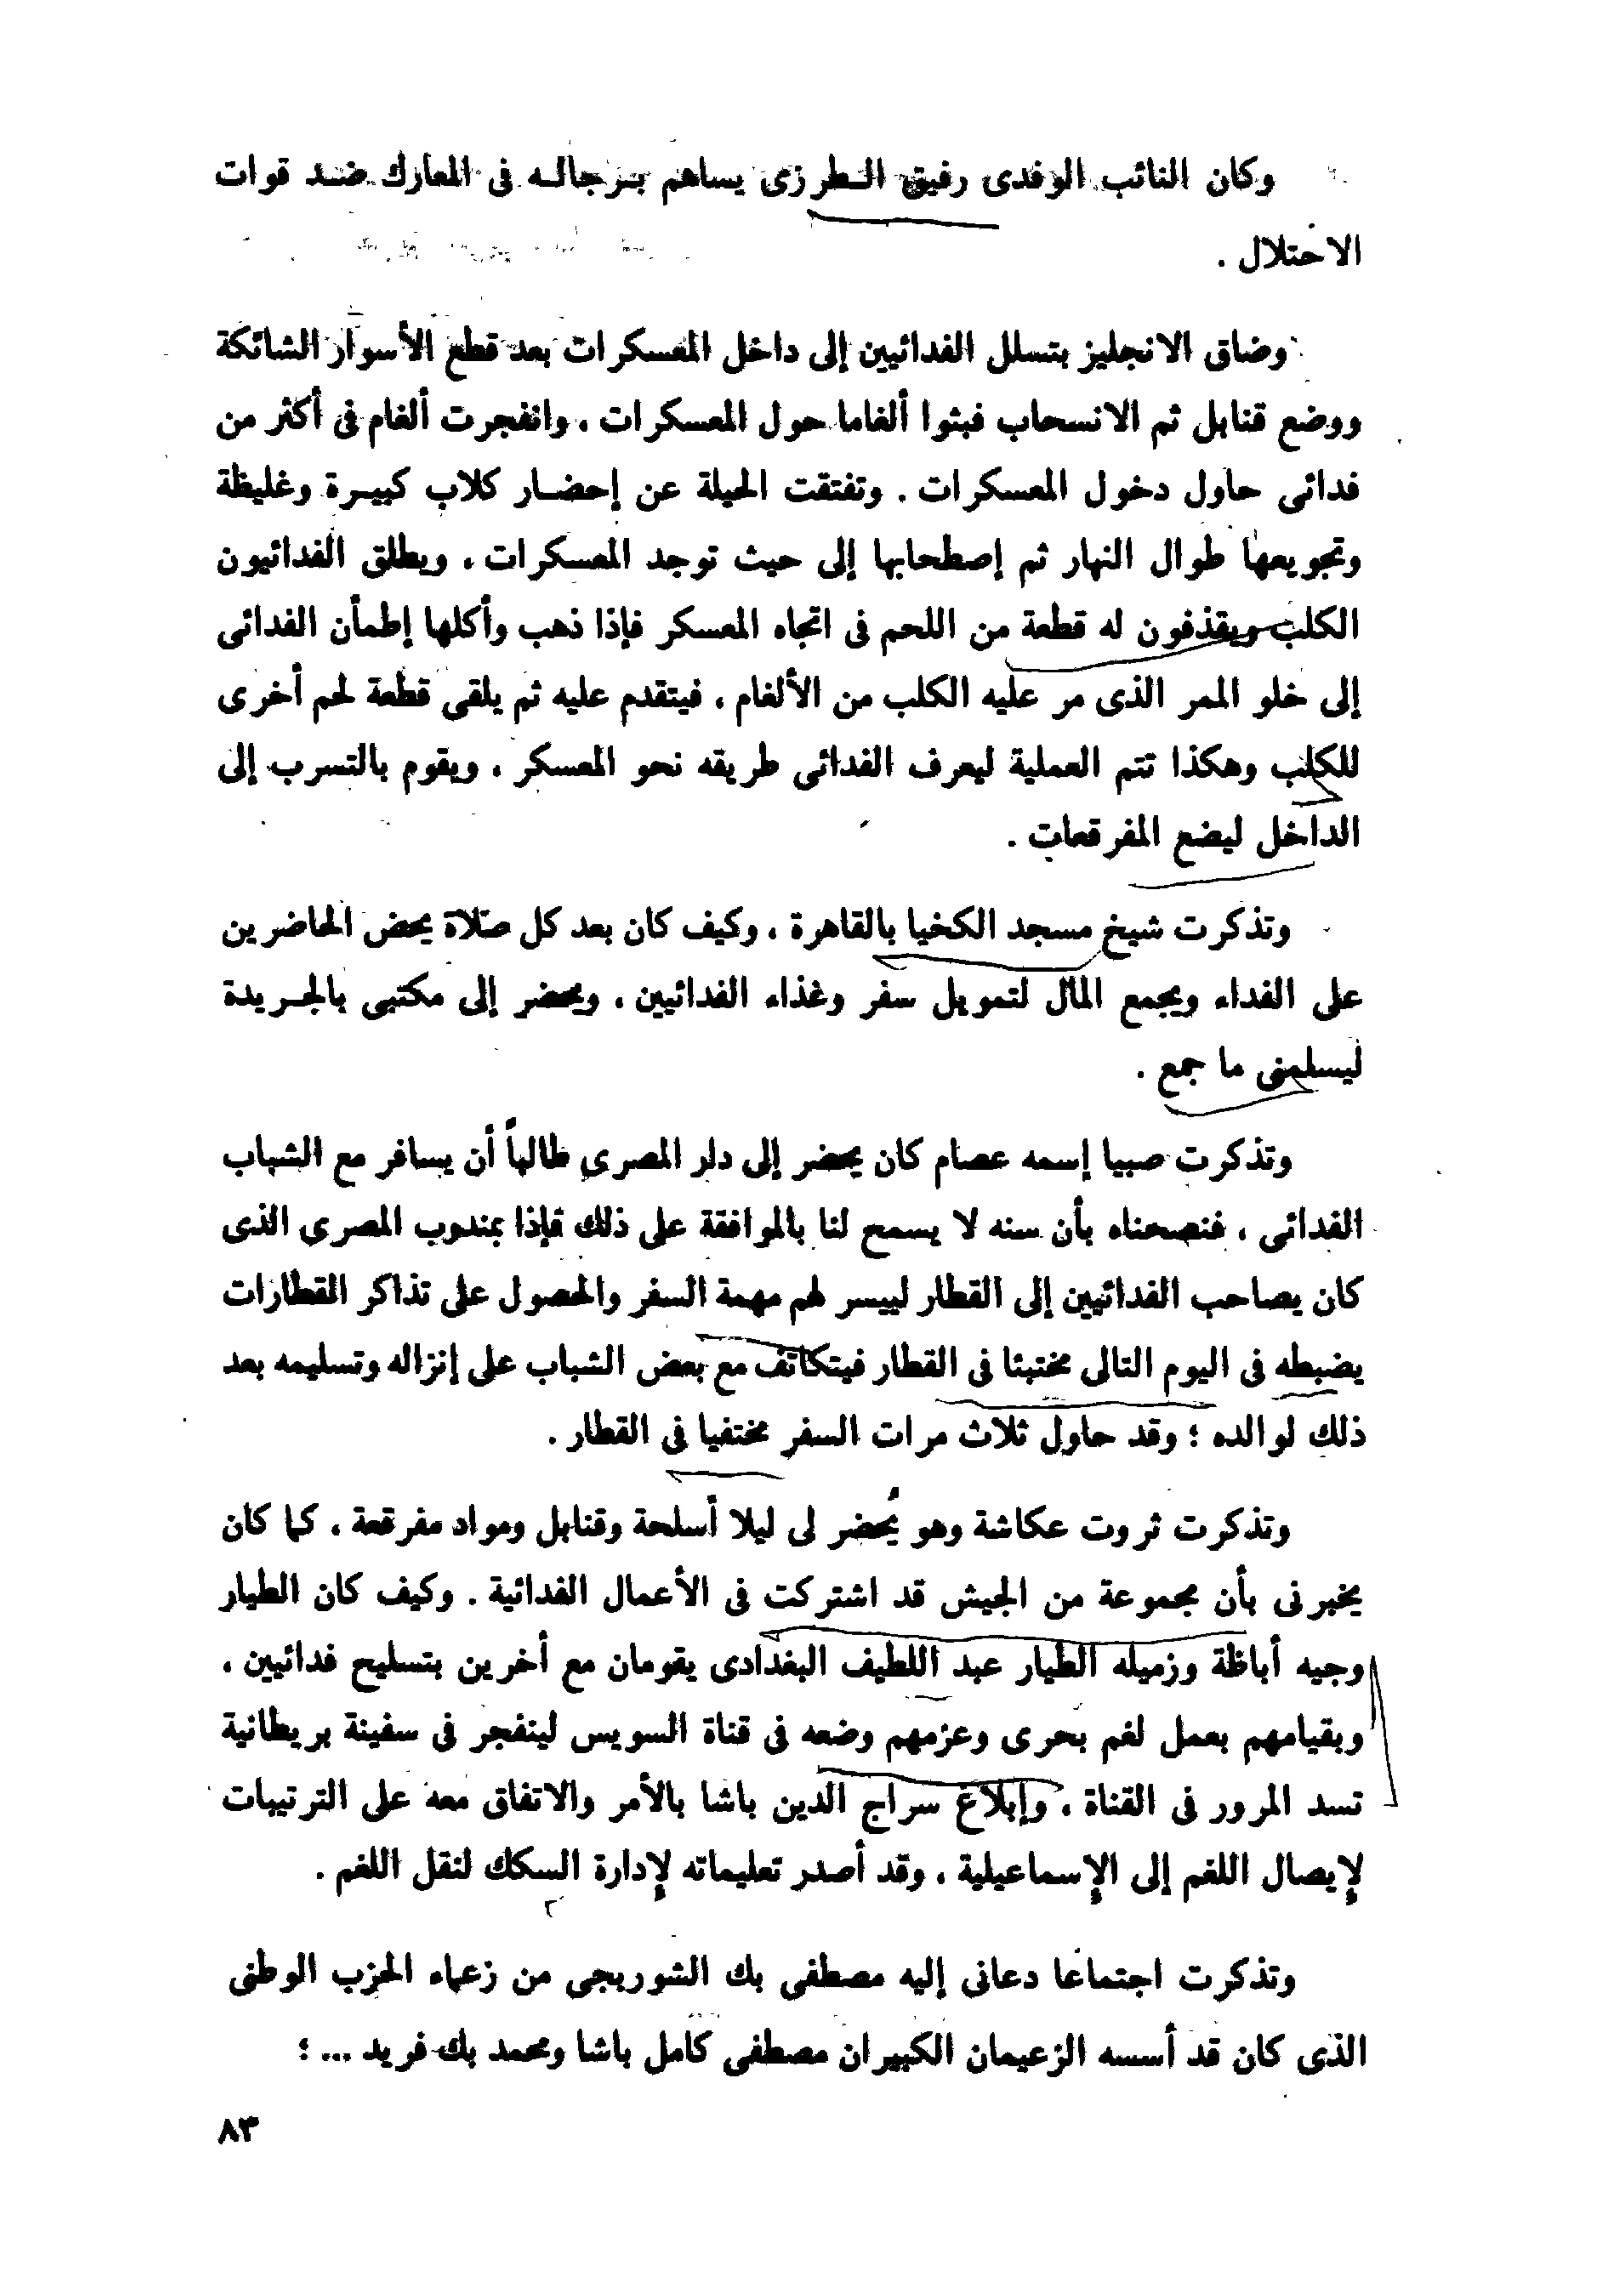 وكان النائب الوفدى رفيق الطرزى يساهم برجاله فى المعارك ضد قوات
الاحتلال .
وضاق الانجليز بتسلل الفدائيين إلى داخل المعسكرات بعد قطع الأسوار الشائكة
ووضع قنابل ثم الانسحاب فبثوا ألغاما حول المعسكرات ، وانفجرت ألغام فى أكثر من
فدائى حاول دخول المعسكرات . وتفتقت الحيلة عن إحضار كلاب كبيرة وغليظة
وتجويعها طوال النهار ثم إصطحابها إلى حيث توجد المعسكرات ، ويطلق الفدائيون
الكلب ويقذفون له قطعة من اللحم فى اتجاه المعسكر فإذا ذهب وأكلها إطمأن الفدائى
إلى خلو الممر الذى مر عليه الكلب من الألغام ، فيتقدم عليه ثم يلقى قطعة لحم أخرى
للكلب وهكذا تتم العملية ليعرف الفدائى طريقه نحو المعسكر ، ويقوم بالتسرب إلى
الداخل ليضع المفرقعات .
وتذكرت شيخ مسجد الكخيا بالقاهرة ، وكيف كان بعد كل صلاة يحض الحاضرين
على الفداء ويجمع المال لتمويل سفر وغذاء الفدائيين ، ويحضر إلى مكتبى بالجريدة
ليسلمنى ما جمع .
وتذكرت صبيا إسمه عصام كان يحضر إلى دار المصرى طالباً أن يسافر مع الشباب
الفدائى ، فنصحناه بأن سنه لا يسمح لنا بالموافقة على ذلك فإذا بمندوب المصرى الذى
كان يصاحب الفدائيين إلى القطار لييسر لهم مهمة السفر والحصول على تذاكر القطارات
يضبطه فى اليوم التالى مختبئا فى القطار فيتكاتف مع بعض الشباب على إنزاله وتسليمه بعد
ذلك لوالده ؛ وقد حاول ثلاث مرات السفر مختفيا فى القطار .
وتذكرت ثروت عكاشة وهو يُحضر لى ليلا أسلحة وقنابل ومواد مفرقعة ، كما كان
يخبرنى بأن مجموعة من الجيش قد اشتركت فى الأعمال الفدائية . وكيف كان الطيار
وجيه أباظة وزميله الطيار عبد اللطيف البغدادى يقومان مع أخرين بتسليح فدائيين ،
وبقيامهم بعمل لغم بحرى وعزمهم وضعه فى قناة السويس لينفجر فى سفينة بريطانية
تسد المرور فى القناة ، وإبلاغ سراج الدين باشا بالأمر والاتفاق معه على الترتيبات
لإيصال اللغم إلى الإسماعيلية ، وقد أصدر تعليماته لإدارة السكك لنقل اللغم .
وتذكرت اجتماعا دعانى إليه مصطفى بك الشوربجى من زعماء الحزب الوطنى
الذى كان قد أسسه الزعيمان الكبيران مصطفى كامل باشا ومحمد بك فريد ... ؛
٨٣